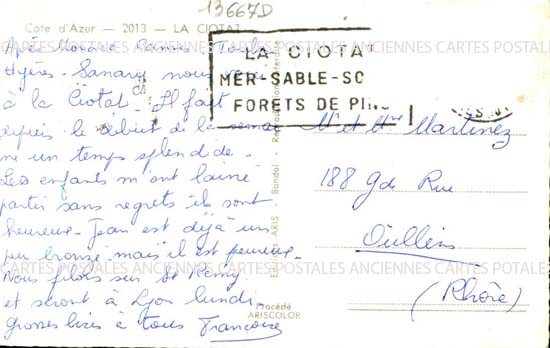 13667D
Côte d'Azur — 2013 — LA CIOTAT
Monaco Cannes Toulon
Hyères - Sanary nous
à la Ciotat - Il fait
depuis le début de la semai
ne un temps splendide -
Les enfants m'ont laissé
partir sans regrets ils sont
heureux - Jean est déjà un
peu bronzé mais il est peureux -
Nous filons sur St Rémy
et serons à Lyon lundi -
Grosses bises à tous Françoise
LA CIOTAT
MER-SABLE-SO
FORETS DE PINS
Editions ARIS Bandol - Reproduction interdite
Procédé
ARISCOLOR
Mr et Mme Martinez
188 gde Rue
Oullins
(Rhône)
CARTES POSTALES ANCIENNES CARTES POSTALES ANCIENNES CARTES POTALES
CARTES POSTALES ANCIENNES CARTES POSTALES ANCIENNES CARTES POTALES